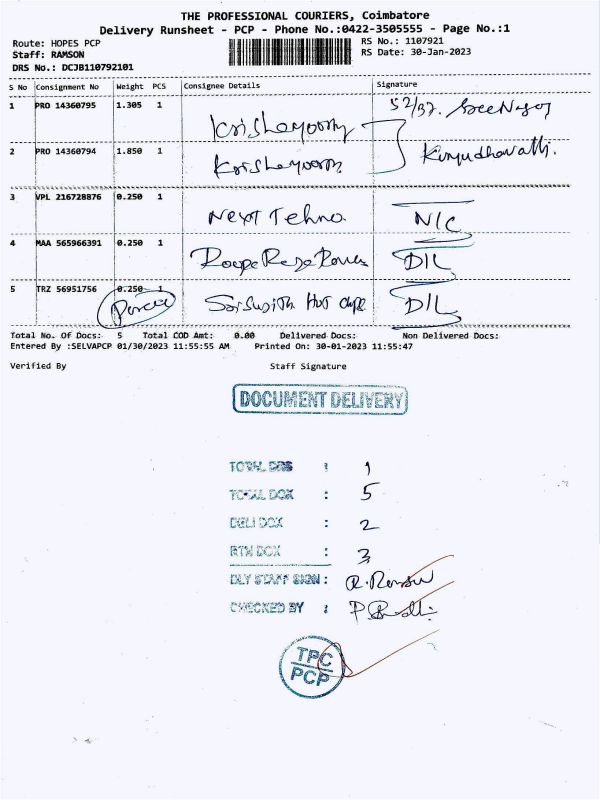 THE PROFESSIONAL COURIERS, Coimbatore
Delivery Runsheet - PCP - Phone No.:0422-3505555 - Page No.:1
Route: HOPES PCP
RS No.: 1107921
Staff: RAMSON
RS Date: 30-Jan-2023
DRS No.: DCJB110792101
S No Consignment No Weight PCS Consignee Details Signature
1 PRO 14360795 1.305 1 52/37.
2 PRO 14360794 1.850 1
3 VPL 216728876 0.250 1 Next Tehno. N/C
4 MAA 565966391 0.250 1 D/L
5 TRZ 56951756 0.250 1 Hot D/L
Parcel
Total No. Of Docs: 5 Total COD Amt: 0.00 Delivered Docs: Non Delivered Docs:
Entered By :SELVAPCP 01/30/2023 11:55:55 AM Printed On: 30-01-2023 11:55:47
Verified By Staff Signature
DOCUMENT DELIVERY
TOTAL DRS : 1
TOTAL DOX : 5
DELI DOX : 2
RTN DOX : 3
DLY STAFF SIGN : R. Ramson
CHECKED BY :
TPC
PCP